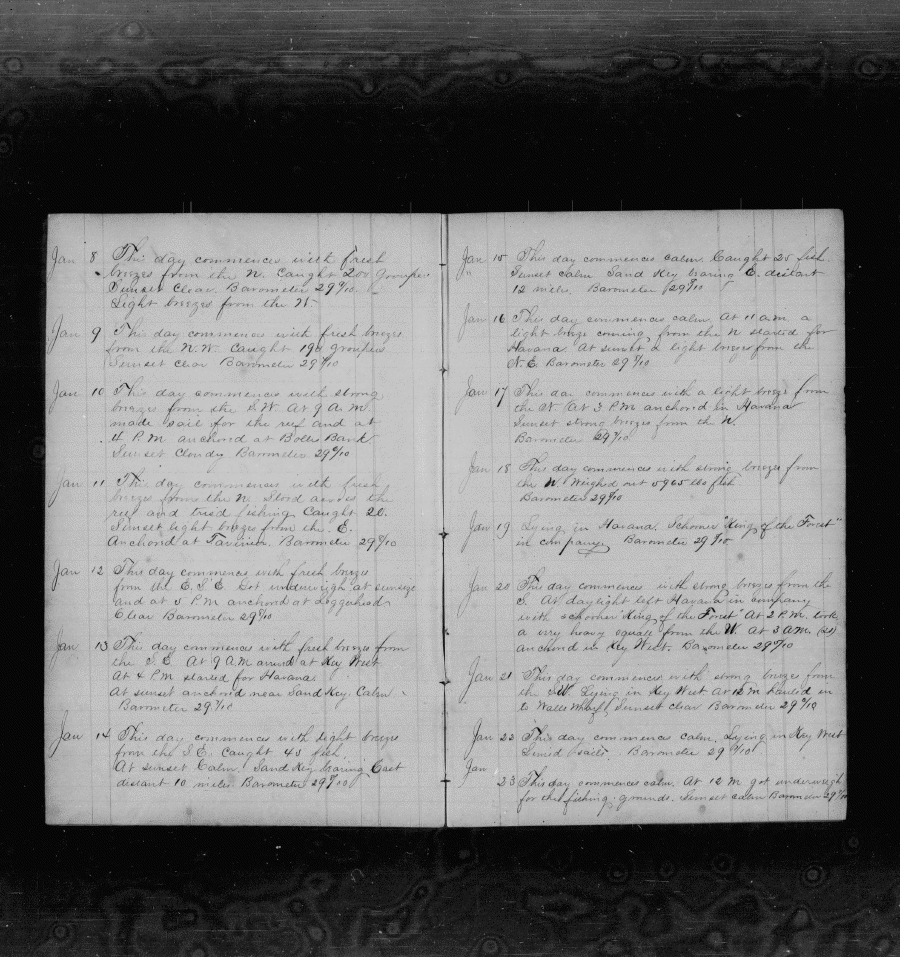 Jan 8 This day commences with fresh
breezes from the N. Caught 200 groupers
Sunset Clear. Barometer 29 /10.
Light breezes from the N.
Jan 9 This day commences with fresh breezes
from the N.W. Caught groupers
Sunset clear Barometer 29 /10
Jan 10 This day commences with strong
breezes from the S.W. At 9 A.M.
made sail for the reef and at
4 P.M. anchored at Bank
Sunset Cloudy Barometer 29 /10
Jan 11 This day commences with fresh
breezes from the N. Stood across the
reef and tried fishing Caught 20.
Sunset light breeze from the E.
Anchored at Tavinier. Barometer 29 /10
Jan 12 This day commences with fresh breezes
from the E.S.E. Got underweigh at sunrise
and at 5 P.M anchored at Loggerhead
Clear Barometer 29 /10
Jan 13 This day commences with fresh breezes from
the S.E. At 9 A.M at Key West
At 4 P.M started for Havana.
At sunset anchored near Sand Key. Calm
Barometer 29 /10
Jan 14 This day commences with light breezes
from the S.E. Caught 45 fish
At sunset Calm. Sand Key bearing East
distant 10 miles Barometer 29 /10
Jan 15 This day commences calm Caught 25 fish.
" Sunset Calm Sand Key bearing E. distant
12 miles. Barometer 29 /10
Jan 16 This day commences calm. At 11 a.m. a
light breeze coming from the N started for
Havana. At sunset a light breeze from the
N.E. Barometer 29 /10
Jan 17 This day commences with a light breeze from
the N. At 3 P.M anchored in Havana
Sunset strong breezes from the N.
Barometer 29 /10.
Jan 18 This day commences with strong breezes from
the N. Weighed out 5965 lbs fish
Barometer 29 /10
Jan 19 Lying in Havana. Schooner "King of the Forest"
in company Barometer 29 /10
Jan 20 This day commences with strong breezes from the
S. At daylight left Havana in company
with schooner "King of the Forest" At 2 P.M. took
a very heavy squall from the W. At 3 A.M. (21)
anchored in Key West. Barometer 29 /10
Jan 21 This day commences with strong breezes from
the S.W. Lying in Key West At 12 M hauled in
to Walls Wharf, Sunset clear Barometer 29 /10
Jan 22 This day commences calm. Lying in Key West
sails. Barometer 29 /10
Jan
23 This day commences calm. At 12 M got underweigh
for the fishing grounds. Sunset calm Barometer 29 /10